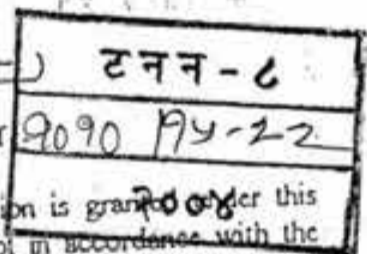 टनन - ८
१०१० १५-२२
२००४
ion is granted under this
in accordance with the